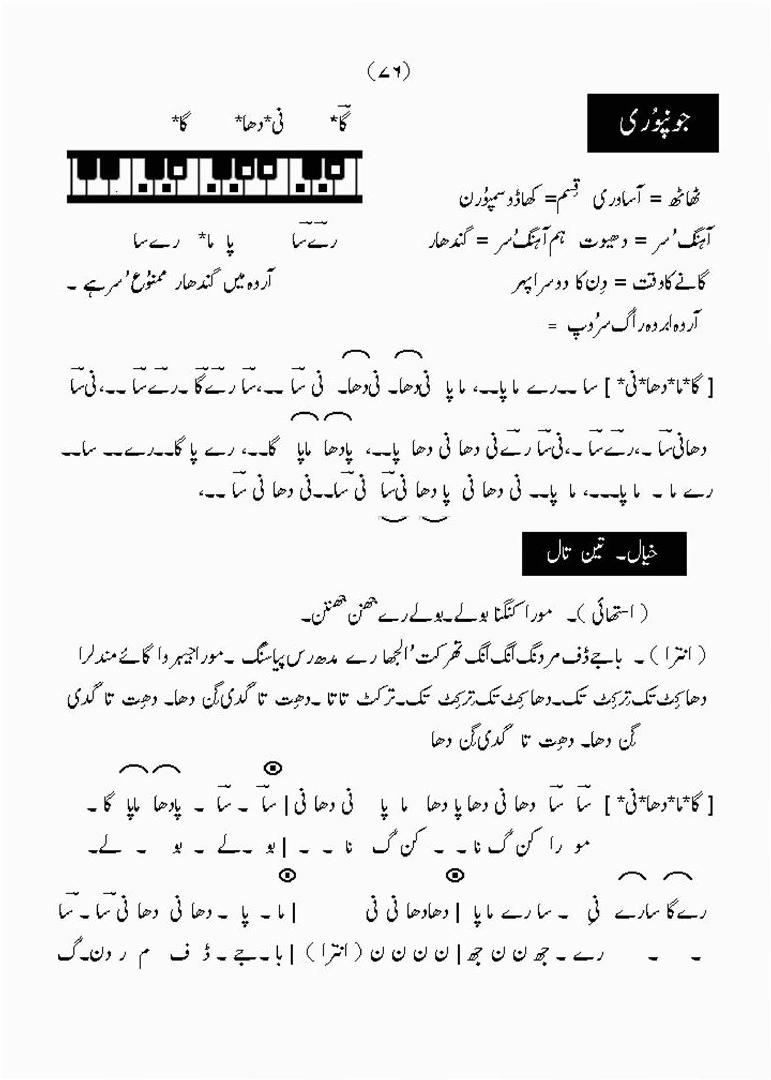 (۷۶)
جونپوُری
گاَ* نی*دھا* گا*
ٹھاٹھ = آساوری قِسم= کھاڈوسمپُورن
رےَساَ پا ما* رےسا
آہنگ ُسر = دھیوت ہم آہنگ ُسر = گندھار
گانے کا وقت = دِن کا دوسرا پہر
آروہ میں گندھار ممنُوع ُسر ہے ۔
آروہ امروہ راگ سرُوپ =
[ گا*ما*دھا*نی* ] سا ۔۔رے ما پا۔۔، ما پا نی دھا۔ نی دھا۔ نی سا ۔۔،سا رے گا ۔رے سا ۔۔،نی سا
دھا نی سا ۔،رے سا ۔،نی سا رے نی دھا نی دھا پا۔۔، پادھا ماپا گا۔۔، رے پا گا۔۔رے۔۔ سا۔۔
رے ما ۔ ما پا۔۔۔، ما پا۔۔ نی دھا نی پا دھا نی سا نی سا۔۔نی دھا نی سا ۔۔،
خیال۔ تین تال
( استھائی )۔ مورا کنگنا بولے۔بولے رے جھنن جھننن۔
( انترا )۔ باجے ڈف مردنگ انگ انگ تھرکت ُالجھا رے مدھ رس پیاسنگ ۔موراجیہر وا گائے مندلرا
دھا کِٹ تک تِرکِٹ تک۔دھا کِٹ تک تِرکِٹ تک۔ترکٹ تاتا ۔دھِت تا گدی گِن دھا۔ دھِت تا گدی
گِن دھا۔ دھِت تا گدی گِن دھا
[ گا*ما*دھا*نی* ] سا سا دھا نی دھا پا دھا ما پا نی دھا نی | سا ۔ سا ۔ پادھا ماپا گا ۔
مو را کن گ نا ۔ ۔ کن گ نا ۔ ۔ | بو ۔لے ۔ بو ۔ لے۔
رےگا سارے نِی ۔ سا رے ما پا | دھادھا نی نی | ما ۔ پا ۔ دھا نی دھا نی سا ۔ سا
۔ ۔ رے ۔ جھ ن ن جھ | ن ن ن ن ( انترا ) | با ۔جے ۔ ڈ ف م ر دن۔گ